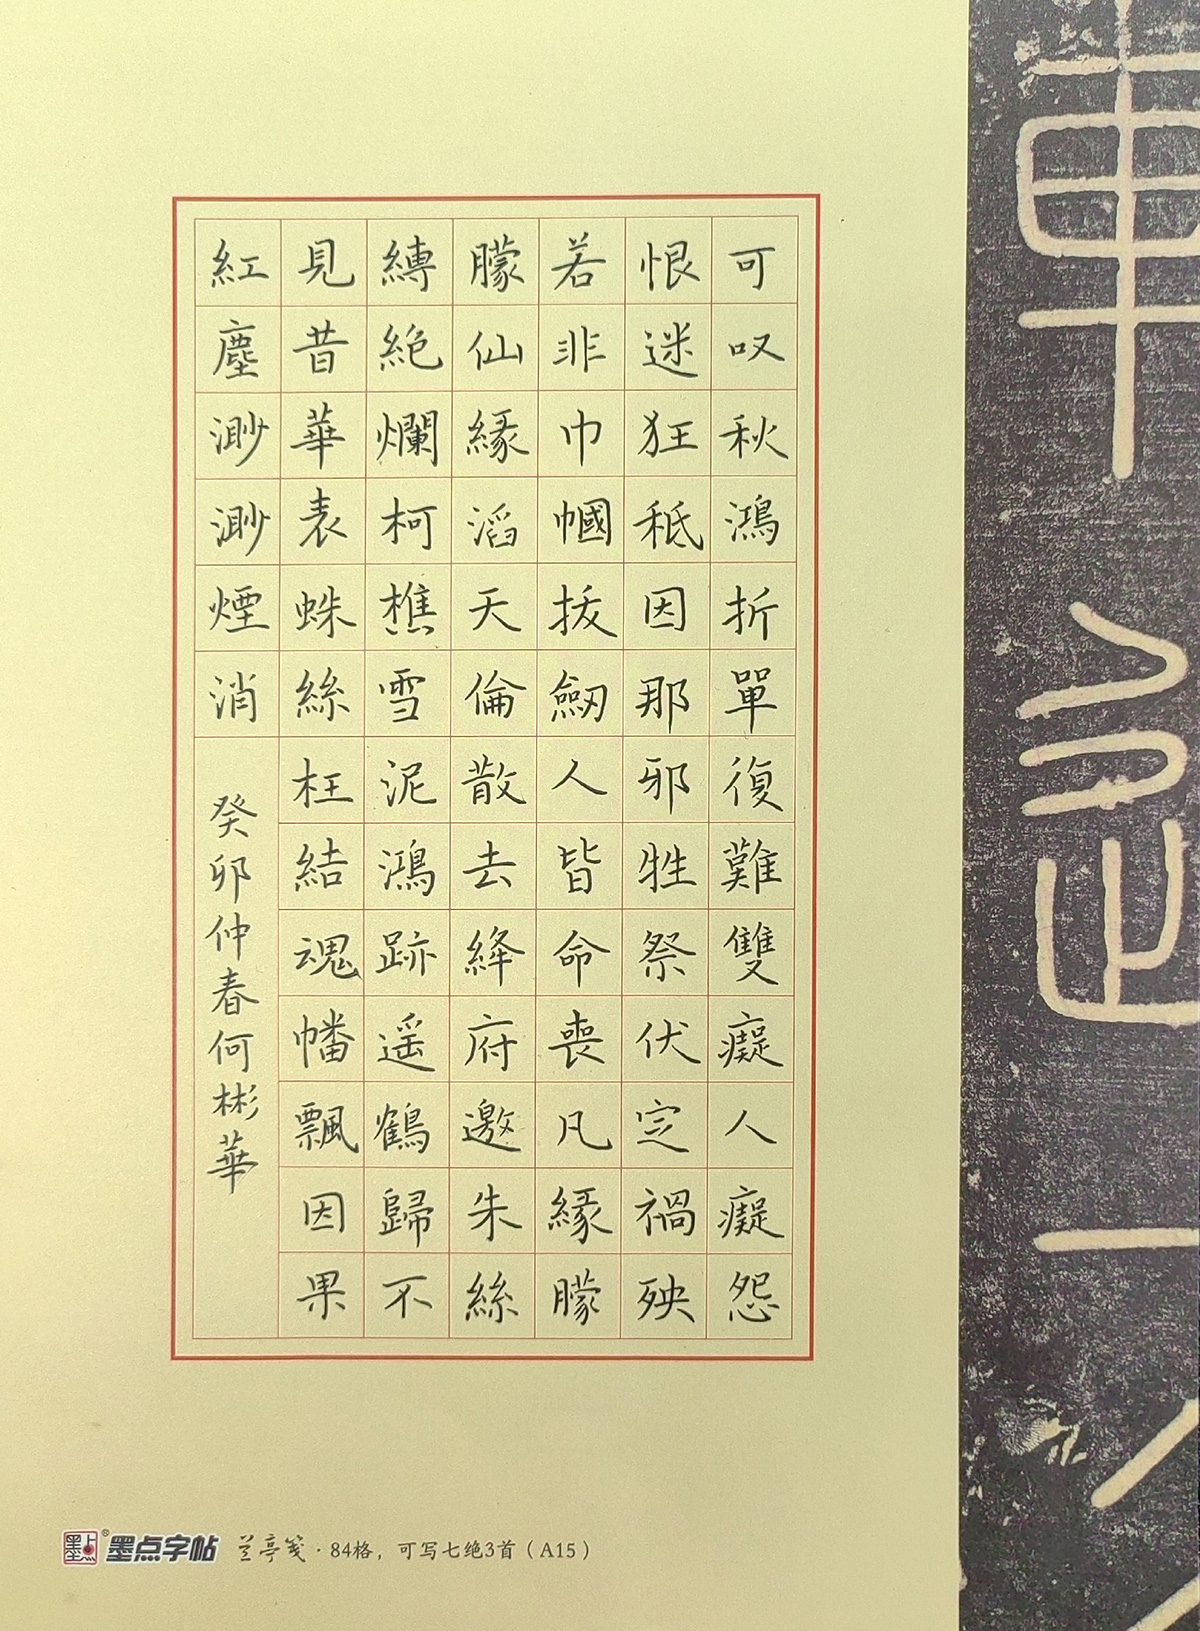 可叹秋鴻折單復難雙癡人癡怨
恨迷狂秪因那邪牲祭伏定禍殃
若非巾幗拔劒人皆命喪凡緣朦
朦仙緣滔天倫散去絳府邀朱絲
縛絶爛柯樵雪泥鴻跡遥鶴歸不
見昔華表蛛絲枉結魂幡飄因果
紅塵渺渺煙消
癸卯仲春何彬華
墨点字帖® 兰亭笺·84格，可写七绝3首（A15）